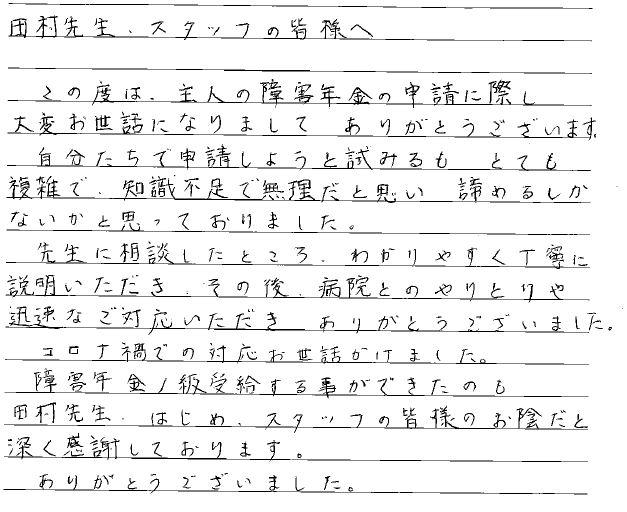 田村先生、スタッフの皆様へ
この度は、主人の障害年金の申請に際し
大変お世話になりまして ありがとうございます。
自分たちで申請しようと試みるも とても
複雑で、知識不足で無理だと思い 諦めるしか
ないかと思っておりました。
先生に相談したところ、わかりやすく丁寧に
説明いただき、その後、病院とのやりとりや
迅速なご対応いただき ありがとうございました。
コロナ禍での対応お世話かけました。
障害年金1級受給する事ができたのも
田村先生、はじめ、スタッフの皆様のお陰だと
深く感謝しております。
ありがとうございました。